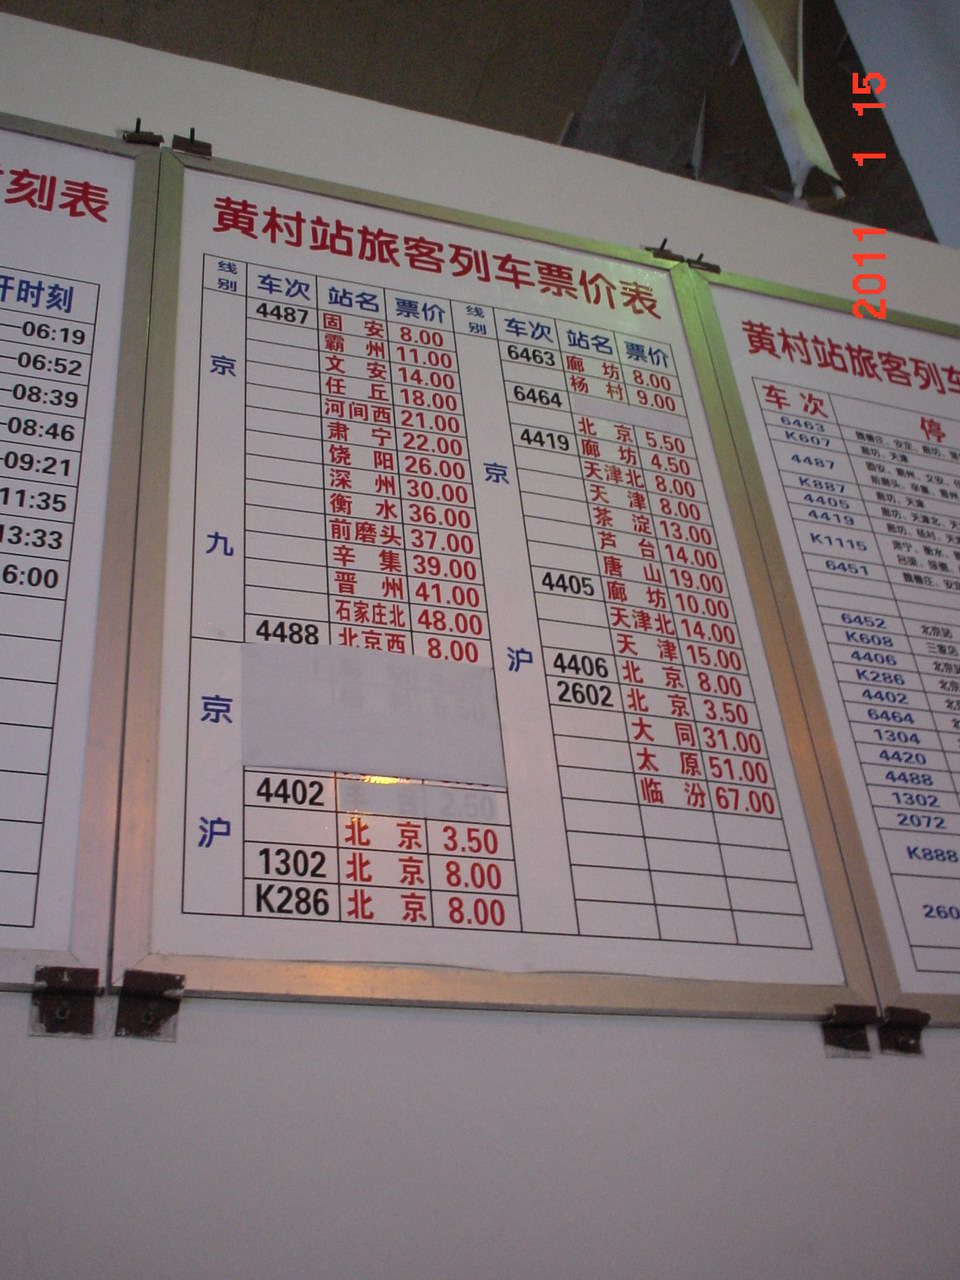 刻表
开时刻
06:19
06:52
08:39
08:46
09:21
11:35
13:33
6:00
黄村站旅客列车票价表
线别 车次 站名 票价 线别 车次 站名 票价
京九
4487 固安 8.00
霸州 11.00
文安 14.00
任丘 18.00
河间西 21.00
肃宁 22.00
饶阳 26.00
深州 30.00
衡水 36.00
前磨头 37.00
辛集 39.00
晋州 41.00
石家庄北 48.00
京沪
4488 北京西 8.00
4402 2.50
北京 3.50
1302 北京 8.00
K286 北京 8.00
京沪
6463 廊坊 8.00
杨村 9.00
6464
北京 5.50
4419 廊坊 4.50
天津北 8.00
天津 8.00
茶淀 13.00
芦台 14.00
唐山 19.00
4405 廊坊 10.00
天津北 14.00
天津 15.00
4406 北京 8.00
2602 北京 3.50
大同 31.00
太原 51.00
临汾 67.00
黄村站旅客列车
车次 停
6463
K607 廊坊、天津
4487
K887 廊坊、天津
4405
4419
K1115
6451
6452 北京站
K608 三家店
4406
K286
4402
6464
1304
4420
4488
1302
2072
K888
260
2011 1 15